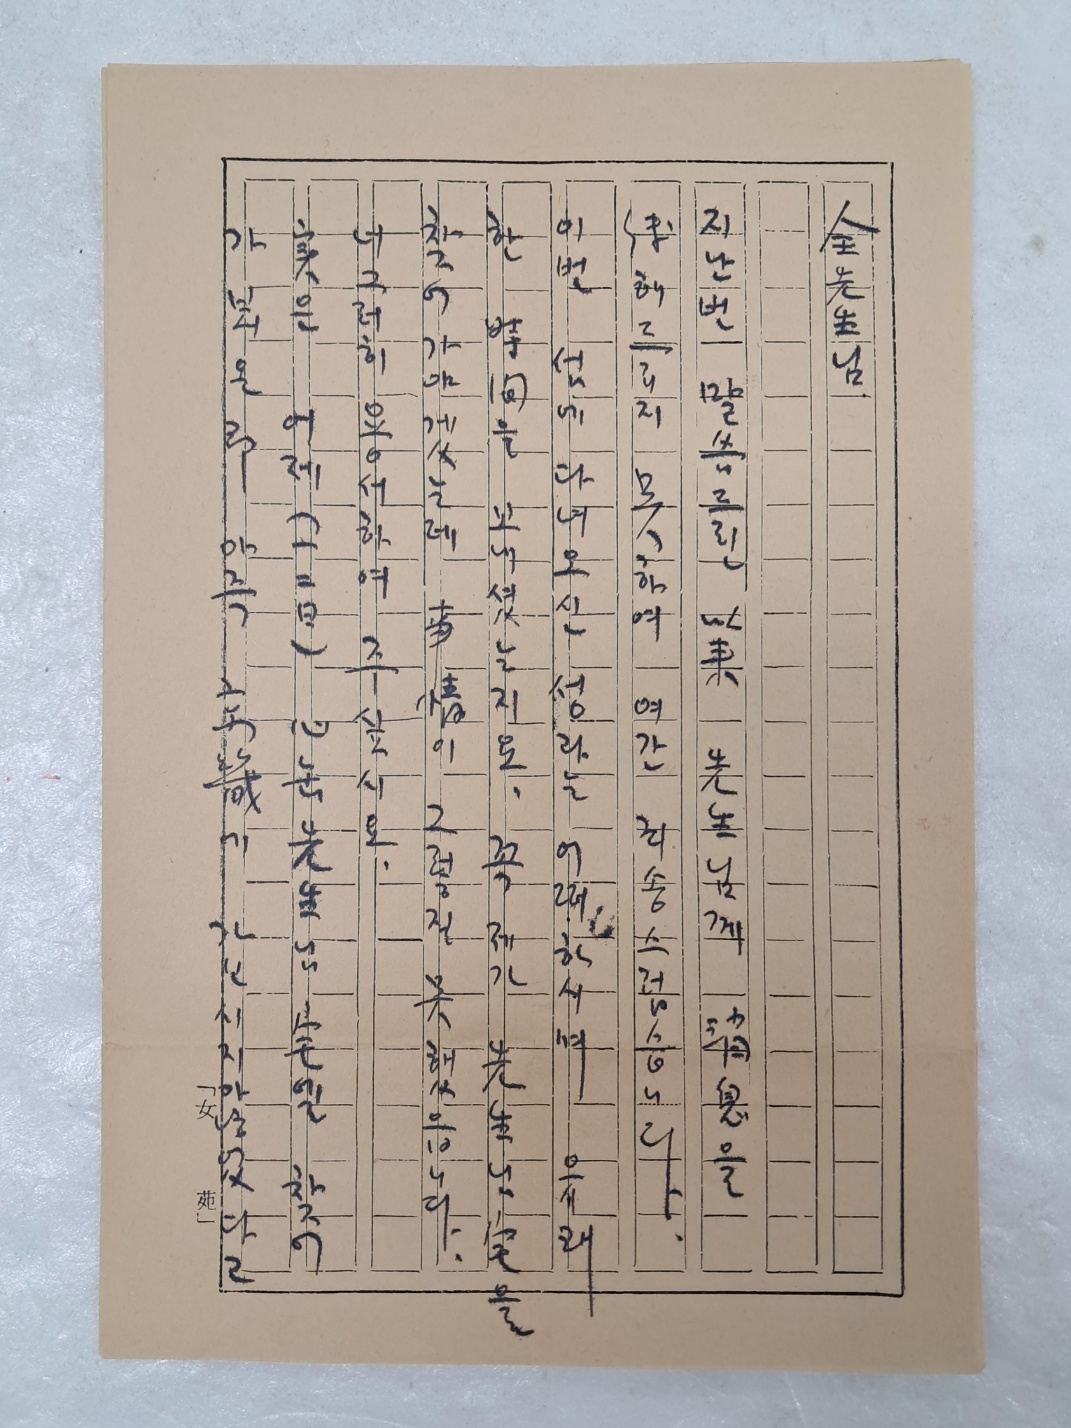 金先生님.
지난번 말씀드린 以來 先生님께 消息을
傳해드리지 못하여 여간 죄송스럽습니다.
이번 섬에 다녀오신 섬라는 어떠하시며 유쾌
한 時間을 보내셨는지요. 꼭 제가 先生님宅을
찾어가야겠는데 事情이 그렇질 못했읍니다.
너그러히 용서하여 주십시요.
實은 어제(十一日) 先生님 찾어
가 은 아직 가
「女苑」